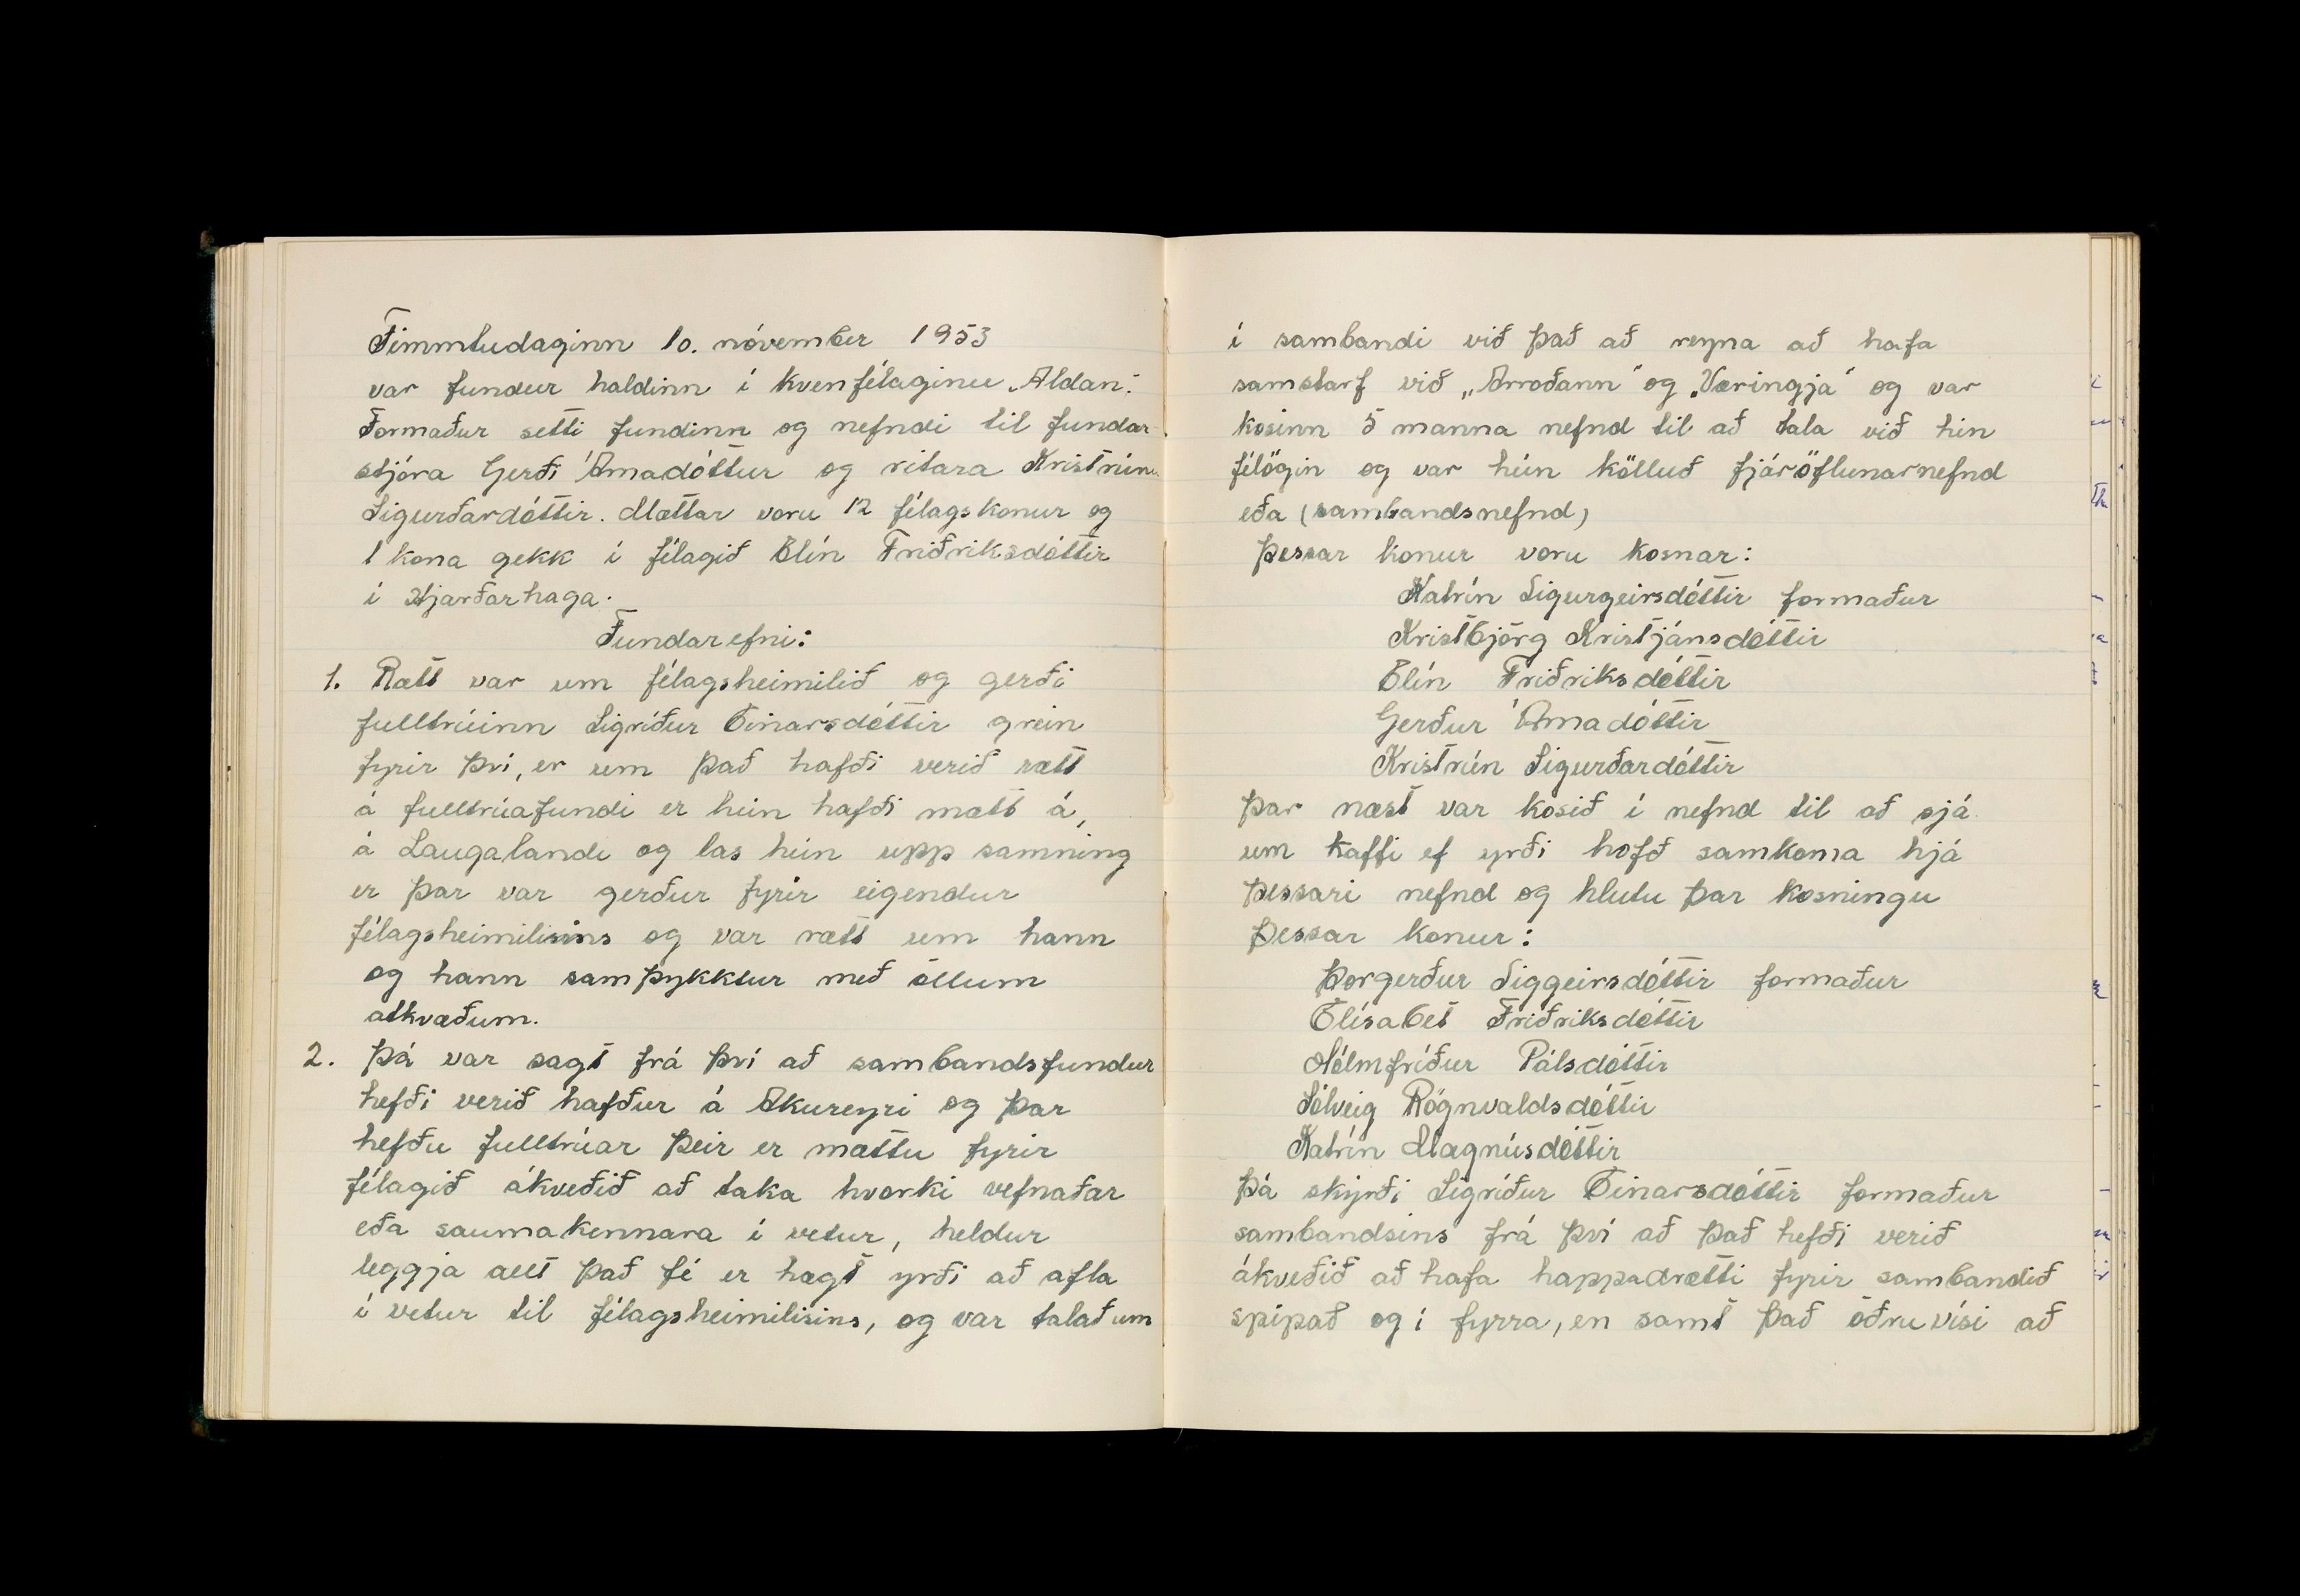 Fimmtudaginn 10. nóvember 1953
var fundur haldinn í kvenfélaginu „Aldan".
Formaður setti fundinn og nefndi til fundar-
stjóra Gerði Árnadóttur og ritara Kristrúnu
Sigurðardóttir. Mættar voru 12 félagskonur og
1 kona gekk í félagið Elín Friðriksdóttir
í Hjarðarhaga.
Fundarefni:
1. Rætt var um félagsheimilið og gerði
fulltrúinn Sigríður Einarsdóttir grein
fyrir því, er um það hafði verið rætt
á fulltrúafundi er hún hafði mætt á,
á Laugalandi og las hún upp samning
er þar var gerður fyrir eigendur
félagsheimilisins og var rætt um hann
og hann samþykktur með öllum
atkvæðum.
2. Þá var sagt frá því að sambandsfundur
hefði verið hafður á Akureyri og þar
hefðu fulltrúar þeir er mættu fyrir
félagið ákveðið að taka hvorki vefnaðar
eða saumakennara í vetur, heldur
leggja allt það fé er hægt yrði að afla
í vetur til félagsheimilisins, og var talað um
í sambandi við það að reyna að hafa
samstarf við „Árroðann" og „Væringja" og var
kosinn 5 manna nefnd til að tala við hin
félögin og var hún kölluð fjáröflunarnefnd
eða (sambandsnefnd)
Þessar konur voru kosnar:
Katrín Sigurgeirsdóttir formaður
Kristbjörg Kristjánsdóttir
Elín Friðriksdóttir
Gerður Árnadóttir
Kristrún Sigurðardóttir
Þar næst var kosið í nefnd til að sjá
um kaffi ef yrði hofð samkoma hjá
þessari nefnd og hlutu þar kosningu
þessar konur:
Þorgerður Siggeirsdóttir formaður
Elísabet Friðriksdóttir
Hólmfríður Pálsdóttir
Sólveig Rögnvaldsdóttir
Katrín Magnúsdóttir
Þá skýrði Sigríður Einarsdóttir formaður
sambandsins frá því að það hefði verið
ákveðið að hafa happadrætti fyrir sambandið
spípað og í fyrra, en samt það öðru vísi að